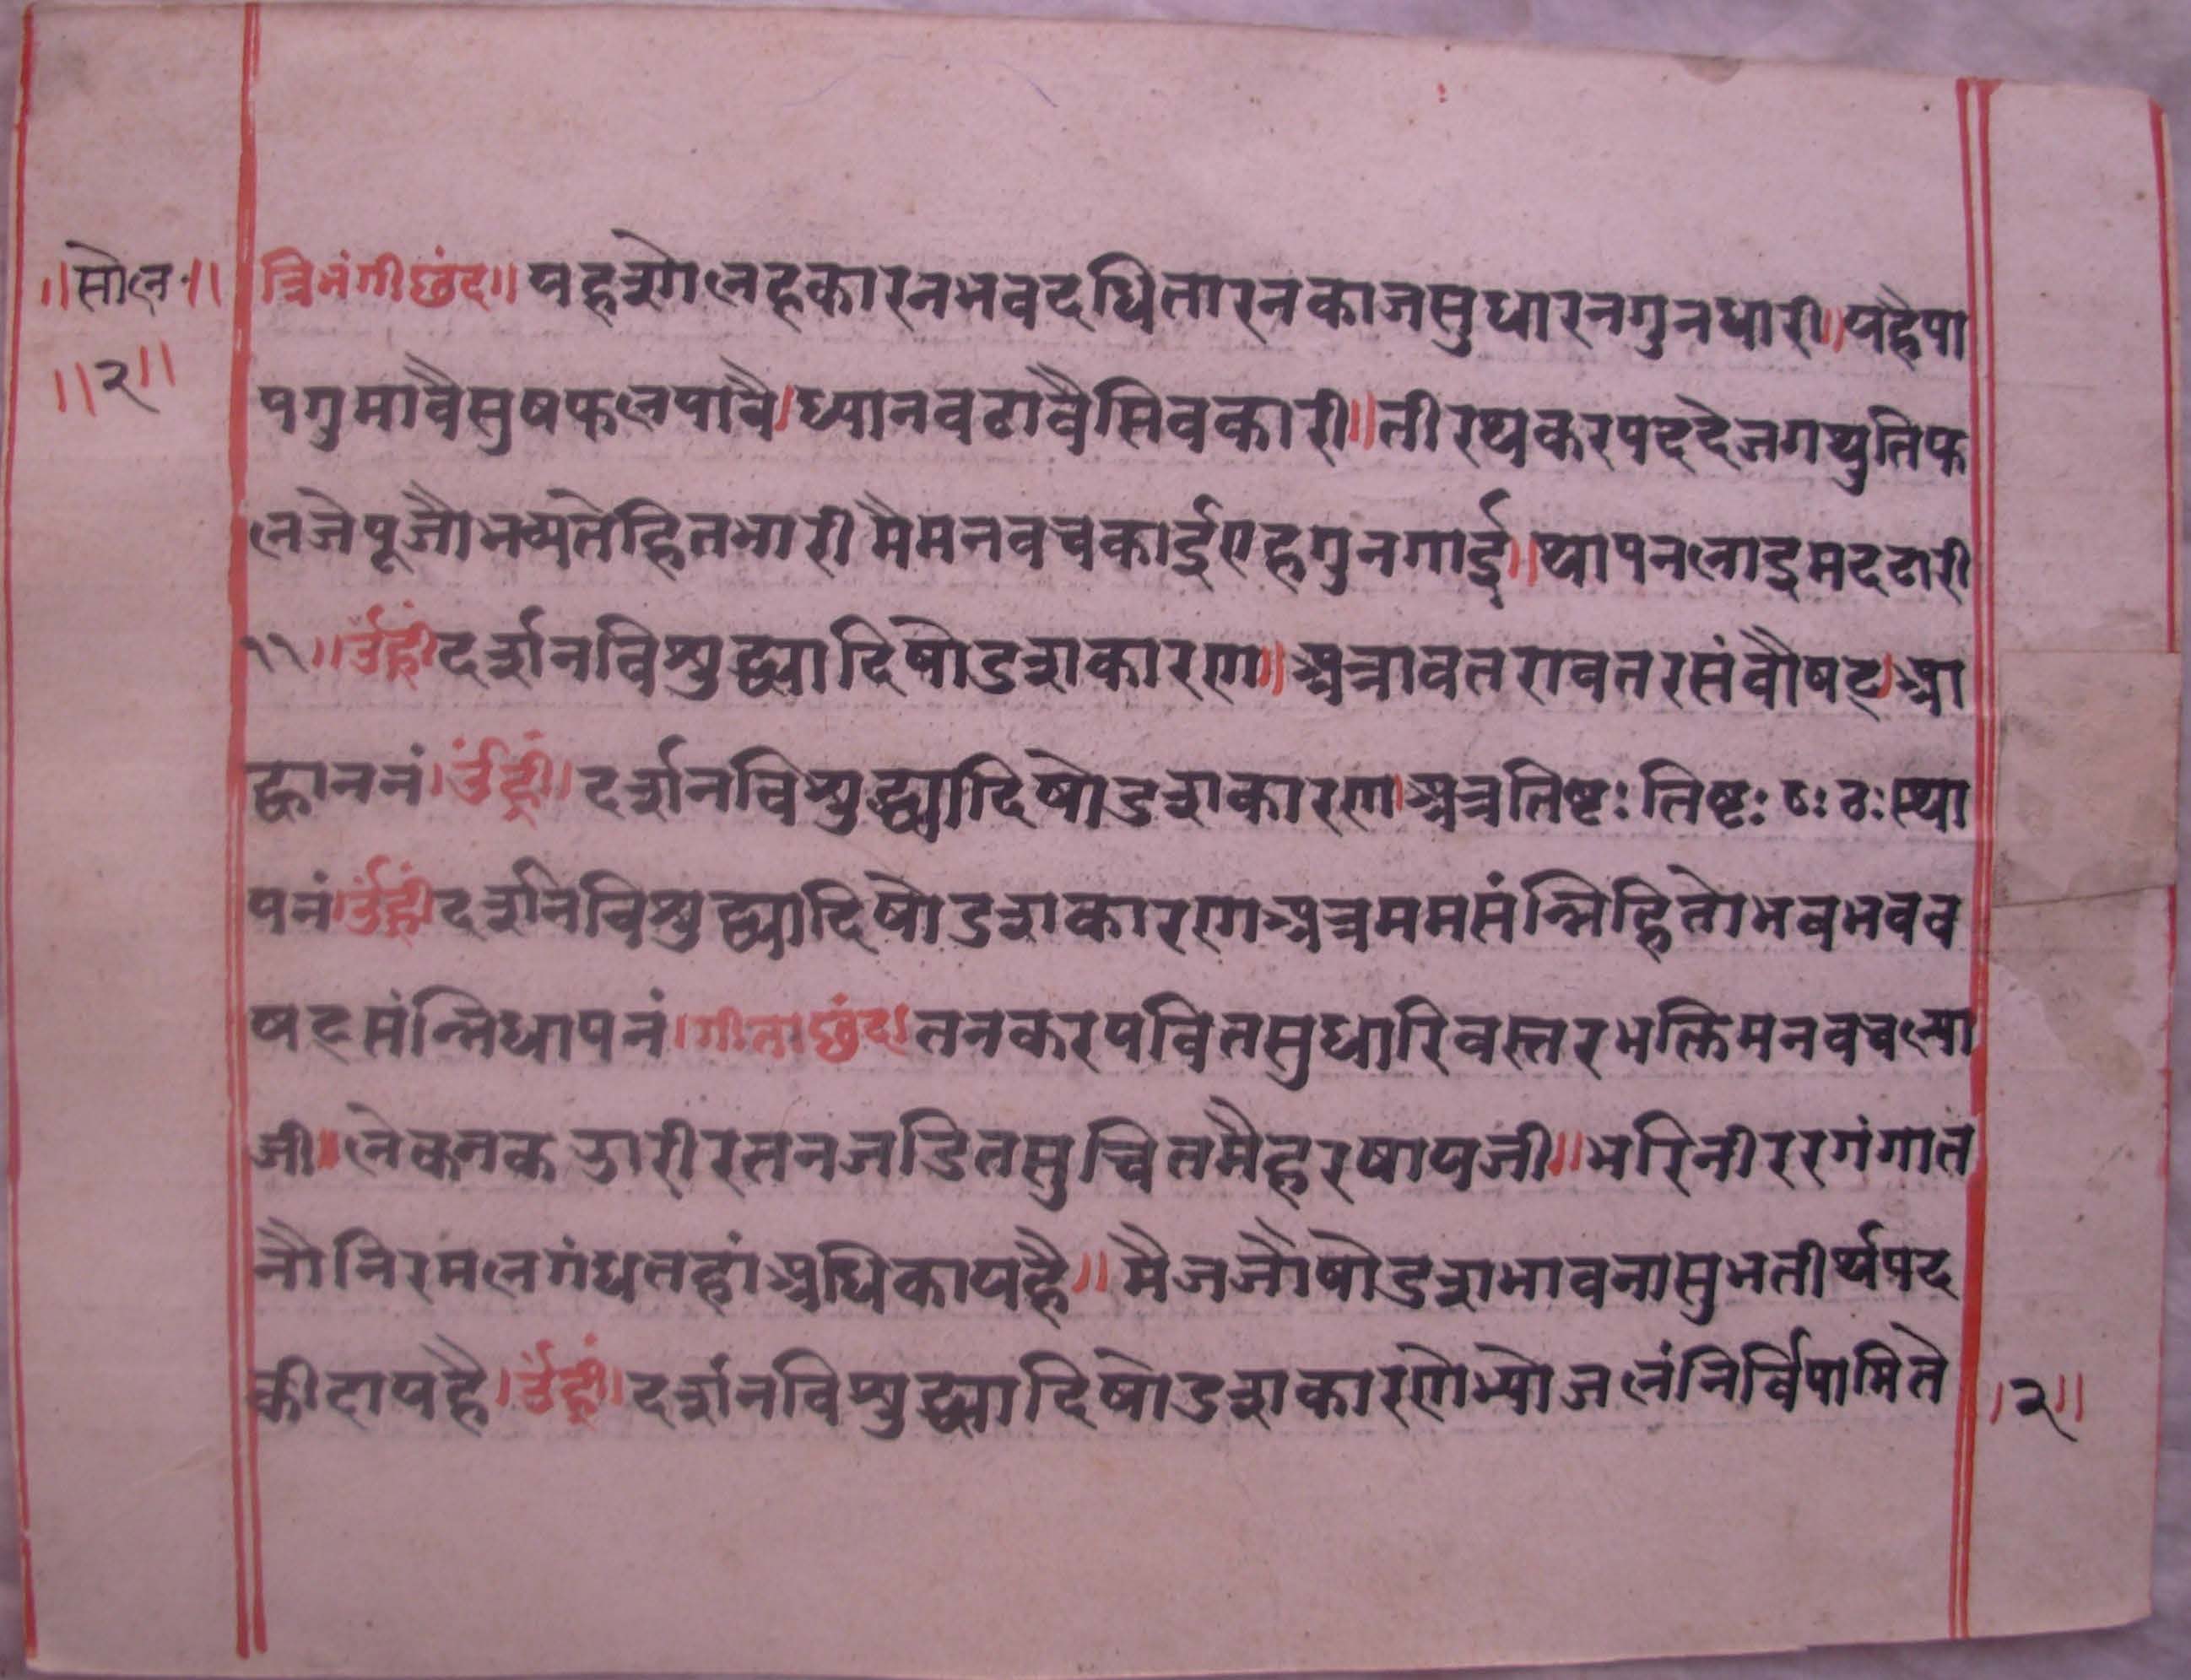 ॥सोल॰॥
॥२॥
त्रिभंगीछंद॥ यहशोलहकारनभवदधितारनकाजसुधारनगुनधारी॥ यहैपा
पगुमावैसुषफलपावै।ध्यानवढावैसिवकारी॥तीरथकरपददेजगथुतिफ
लजेपूजौभव्यतेहितभारी मैमनवचकाईएहगुनगाई॥थापनलाइमदढारी
११॥उँह्रींदर्शनविशुद्ध्यादिषोडशकारण॥अत्रावतरावतरसंवौषट्।आ
ह्वाननं।उँह्रीं।दर्शनविशुद्ध्यादिषोडशकारण।अत्रतिष्टः तिष्टः ठः ठः स्था
पनं।उँह्रीं।दर्शनविशुद्ध्यादिषोडशकारणअत्रममसंन्निहितोभवभवव
षटसंन्निधापनं।गीताछंद।तनकरपवितसुधारिवस्तरभक्तिमनवचल्या
जी॥लेकनकझारीरतनजडितसुचितमैहरषायजी॥भरिनीररगंगात
नौनिरमलगंधतहांअधिकायहै॥मैजजौषोडशभावनासुभतीर्थपद
कीदायहै।उँह्रीं।दर्शनविशुद्ध्यादिषोडशकारणेभ्योजलंनिर्विपामिते
।२॥